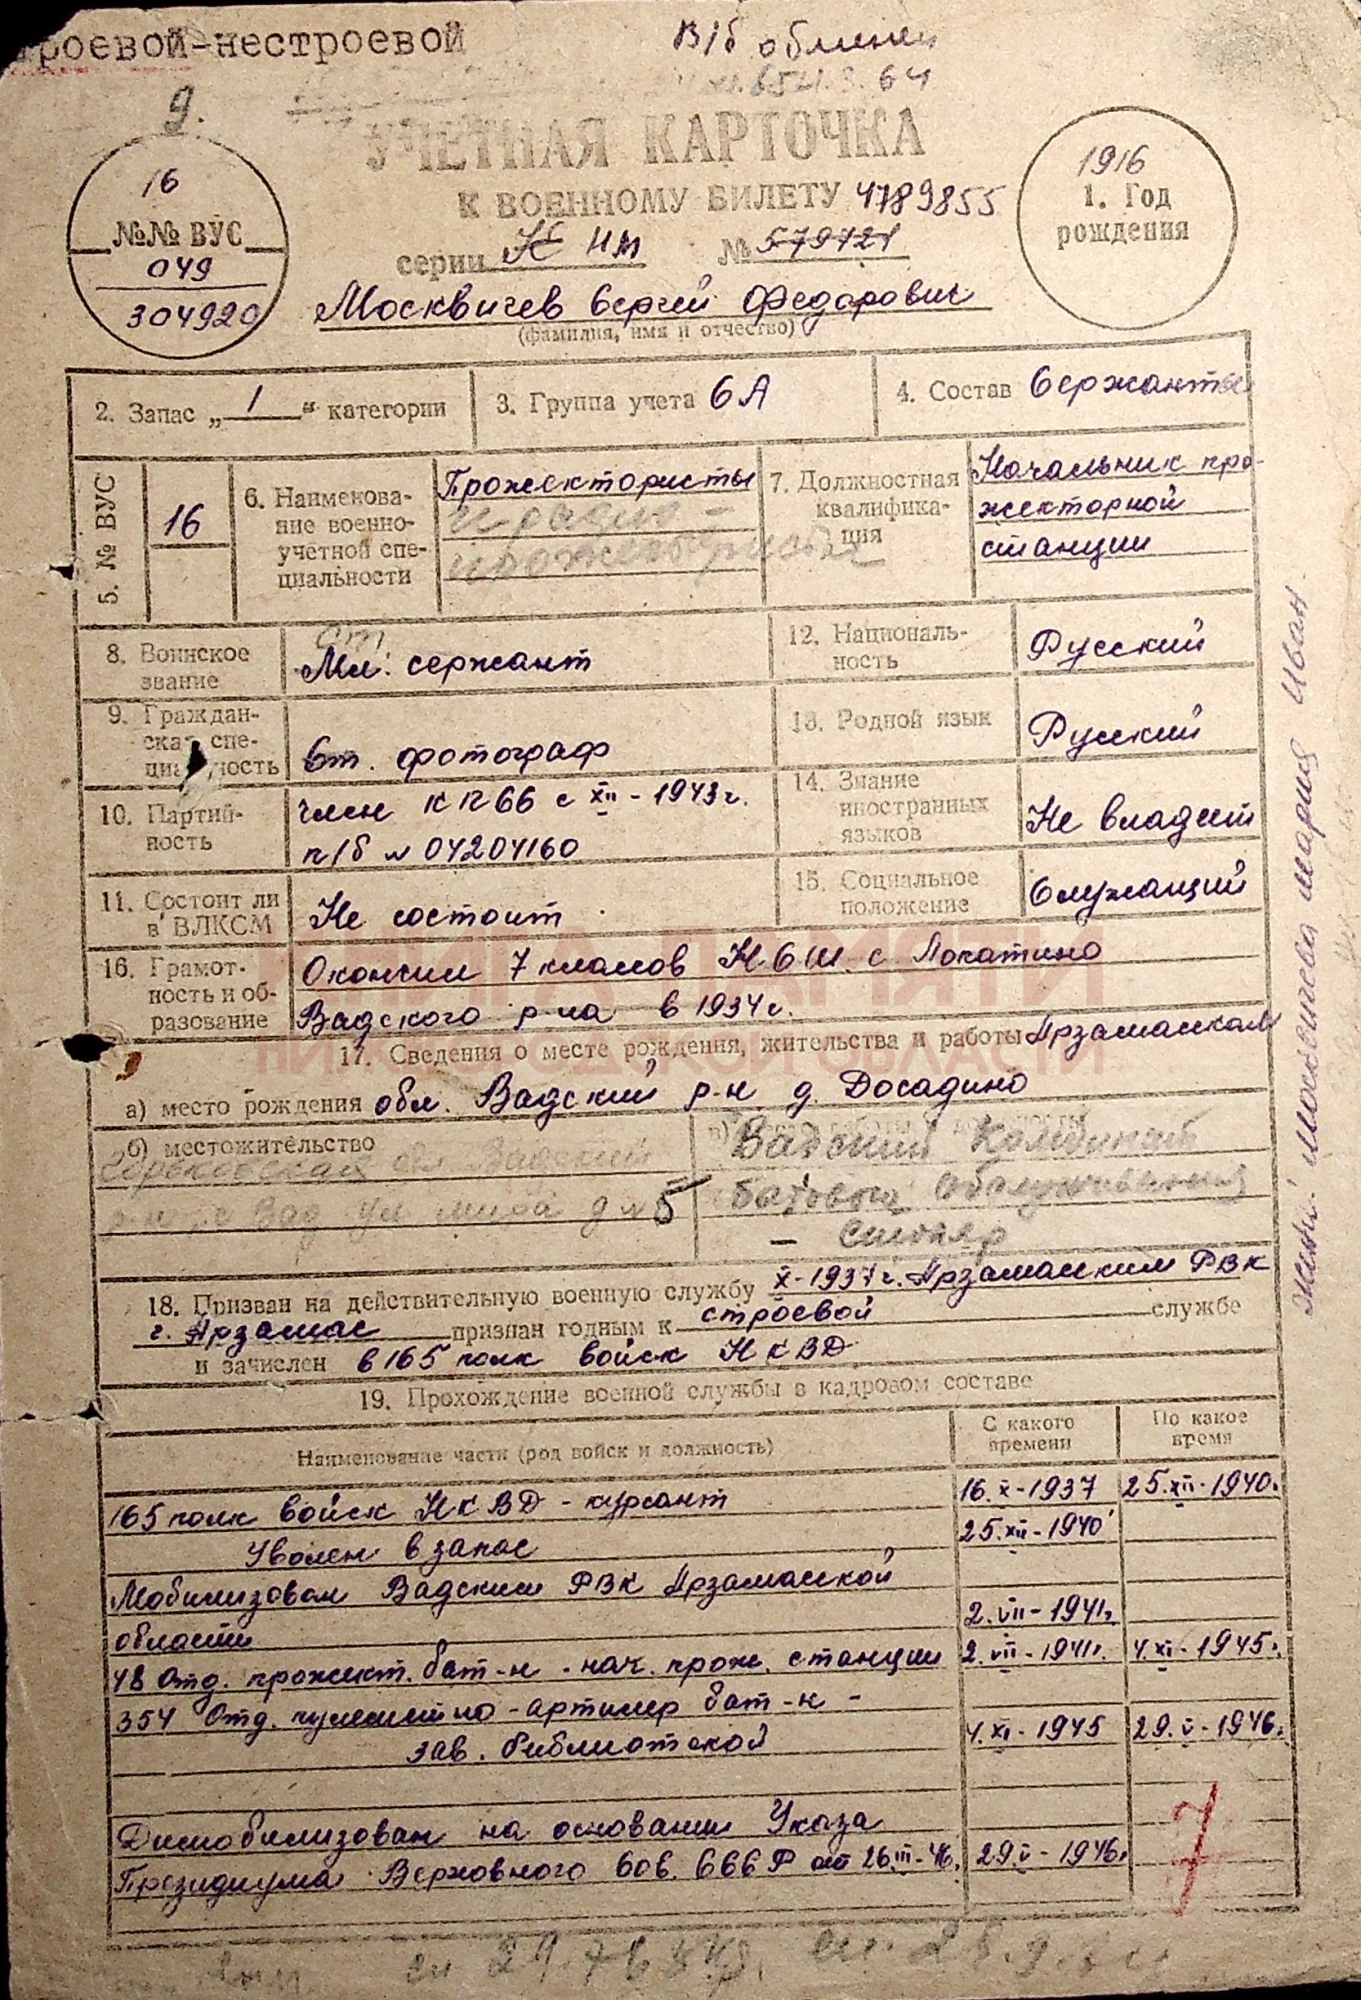 роевой-нестроевой
В/б обменен
9.
УЧЕТНАЯ КАРТОЧКА
К ВОЕННОМУ БИЛЕТУ 4789855
серии НМ № 579721
16
№№ ВУС
049
304920
1916
1. Год
рождения
Москвичев Сергей Федорович
(фамилия, имя и отчество)
2. Запас „ 1 “ категории
3. Группа учета 6А
4. Состав Сержанты
5. № ВУС
16
6. Наименова-
ние военно-
учетной спе-
циальности
Прожектористы
и радио-
прожектористы
7. Должностная
квалифика-
ция
Начальник про-
жекторной
станции
8. Воинское
звание
Ст.
Мл. сержант
12. Националь-
ность
Русский
9. Граждан-
ская спе-
циальность
Ст. фотограф
13. Родной язык
Русский
10. Партий-
ность
член КПСС с XII-1943г.
п/б № 04204160
14. Знание
иностранных
языков
Не владеет
11. Состоит ли
в ВЛКСМ
Не состоит
15. Социальное
положение
Служащий
16. Грамот-
ность и об-
разование
Окончил 7 классов НСШ. с Лопатино
Вадского р-на в 1934г.
КНИГА ПАМЯТИ
НИЖЕГОРОДСКОЙ ОБЛАСТИ
17. Сведения о месте рождения, жительства и работы Арзамаская
а) место рождения обл. Вадский р-н д. Досадино
б) местожительство
Горьковская обл Вадский
р-н с Вад ул мира д № 5
Вадский Комбинат
бытового обслуживания
- столяр
жена: Москвичева мария Иван.
18. Призван на действительную военную службу X-1937г. Арзамаским РВК
г. Арзамас признан годным к строевой службе
и зачислен в 165 полк войск НКВД
19. Прохождение военной службы в кадровом составе
Наименование части (род войск и должность)
С какого
времени
По какое
время
165 полк войск НКВД - курсант 16.X-1937 25.XII-1940.
Уволен в запас 25.XII-1940
Мобилизован Вадским РВК Арзамаской
области 2.VII-1941г.
48 Отд. прожект. бат-н - нач. прож. станции 2.VII-1941г. 4.XI-1945г.
354 Отд. пулеметно-артилер бат-н -
зав. библиотекой 4.XI-1945 29.V-1946г.
Демобилизован на основании Указа
Президиума Верховного Сов. СССР от 26.III-46. 29.V-1946г.
7